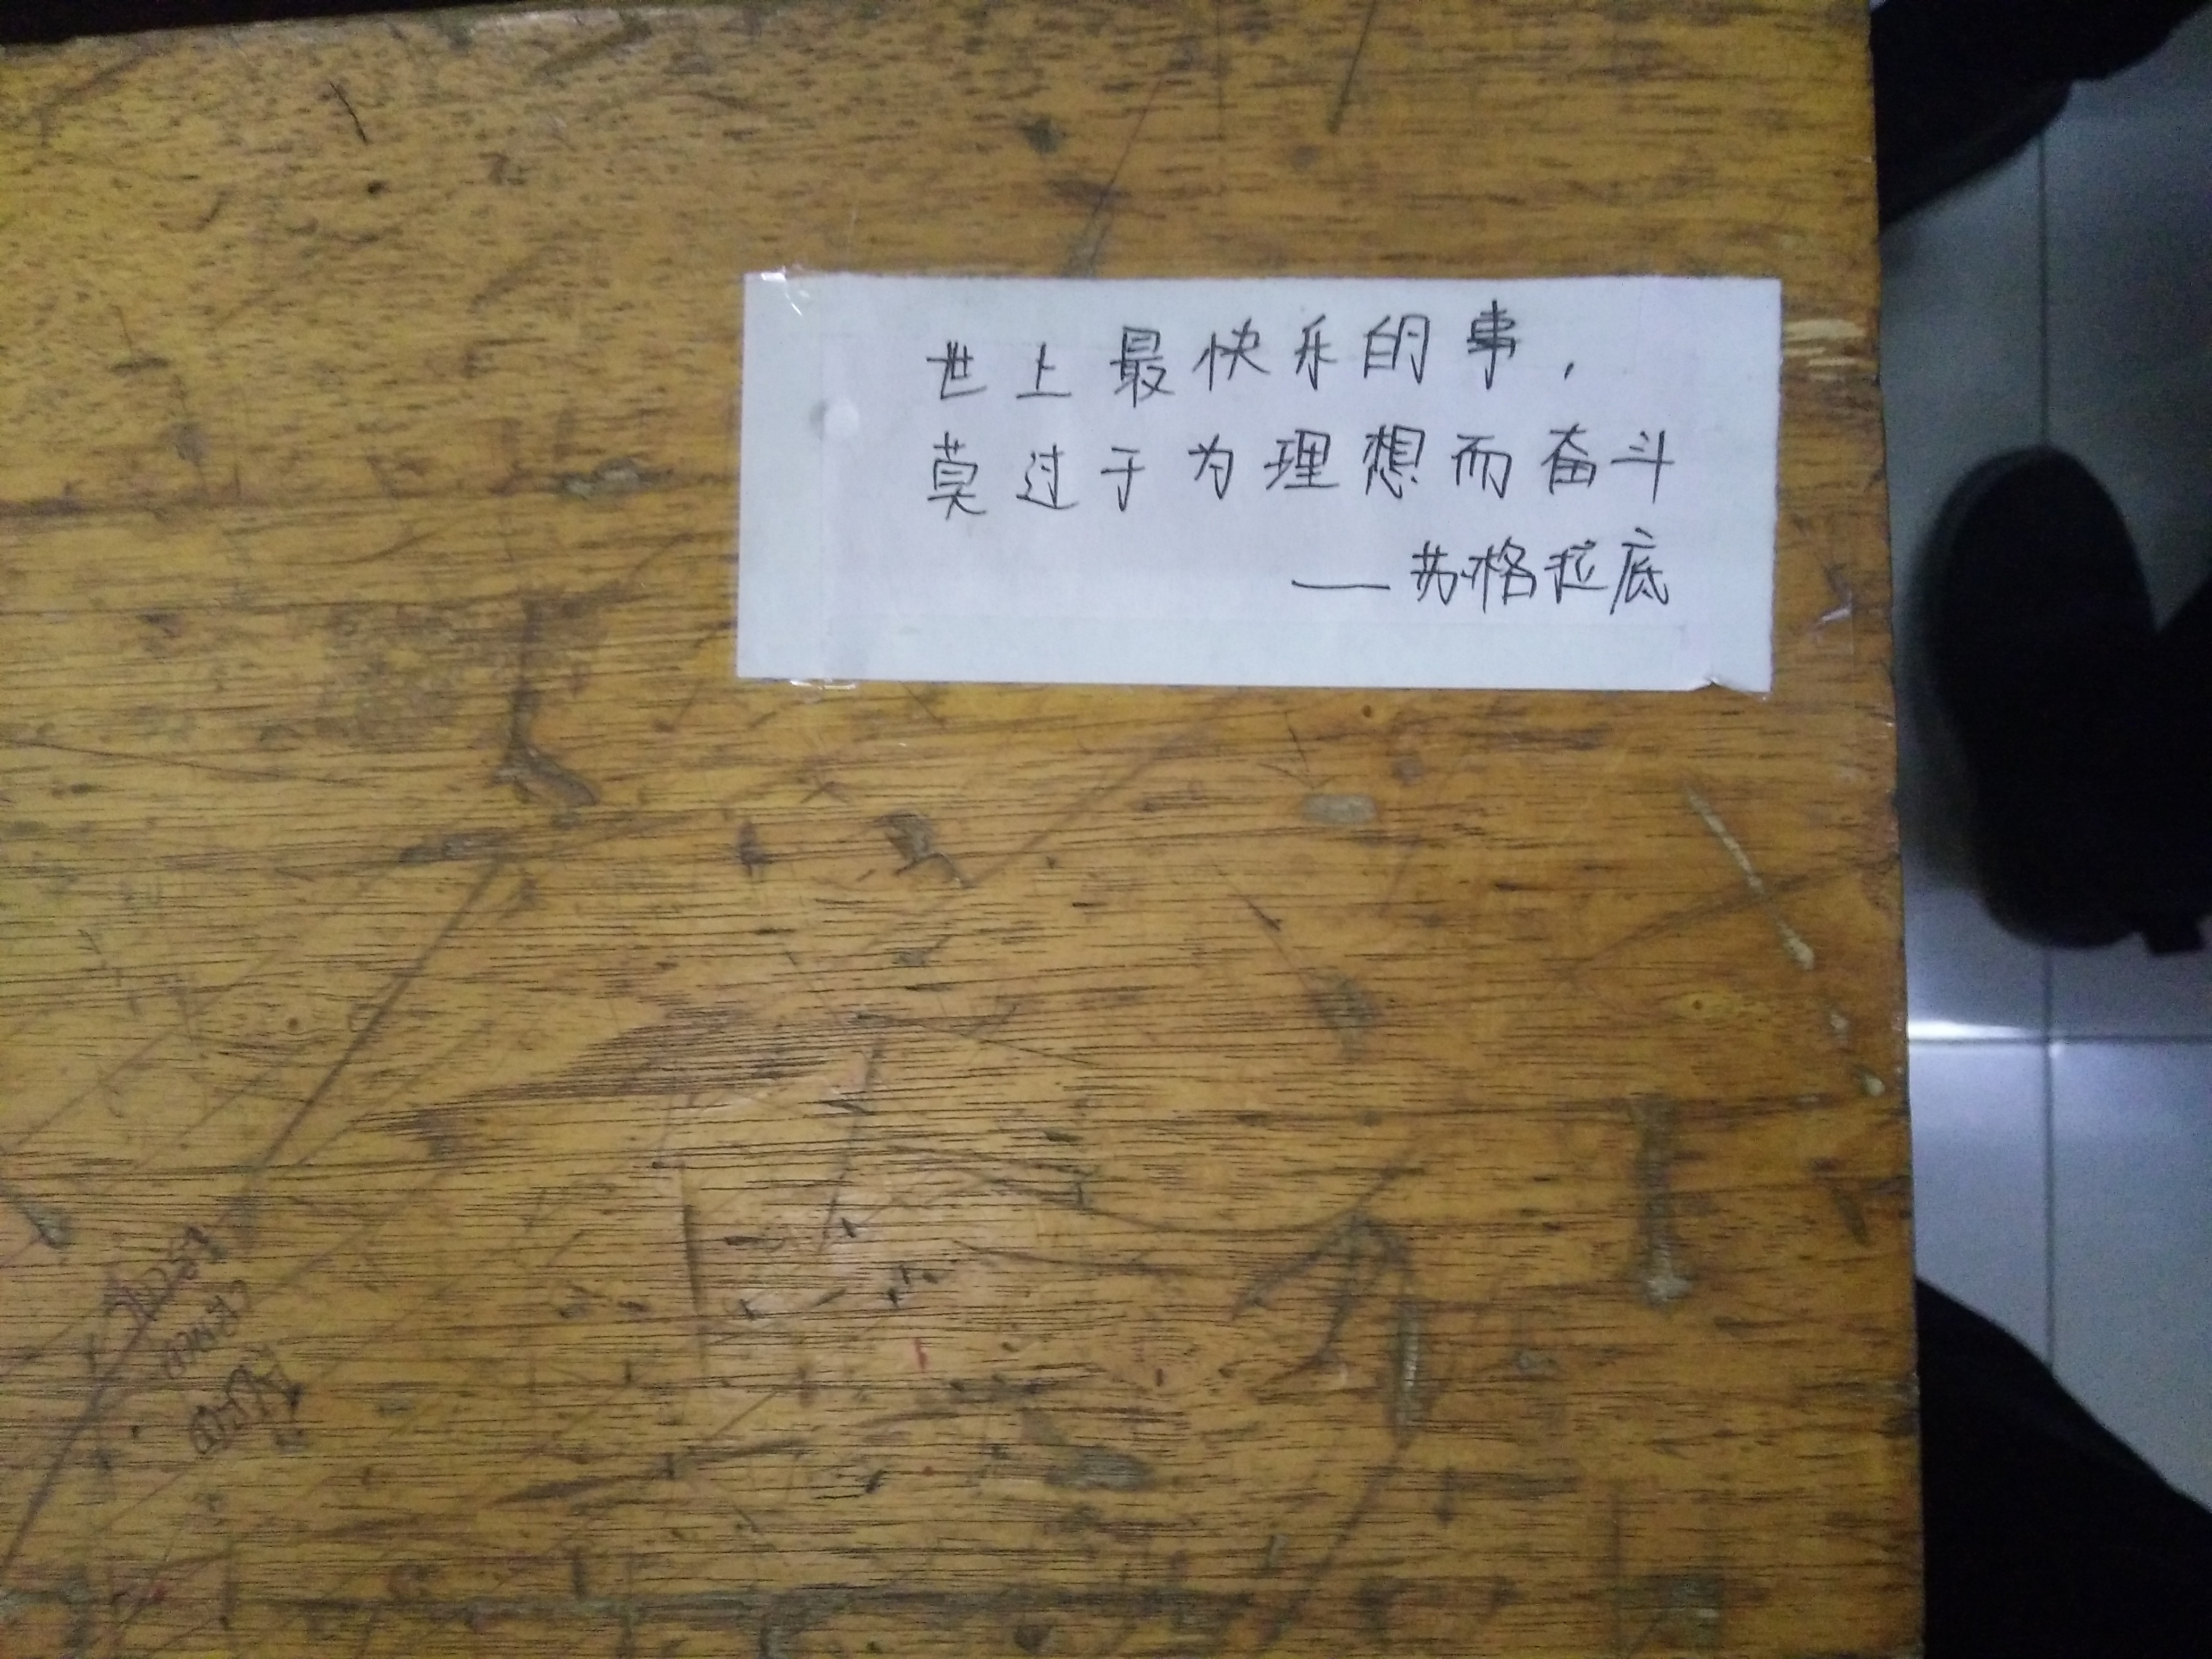 世上最快乐的事，
莫过于为理想而奋斗
——苏格拉底